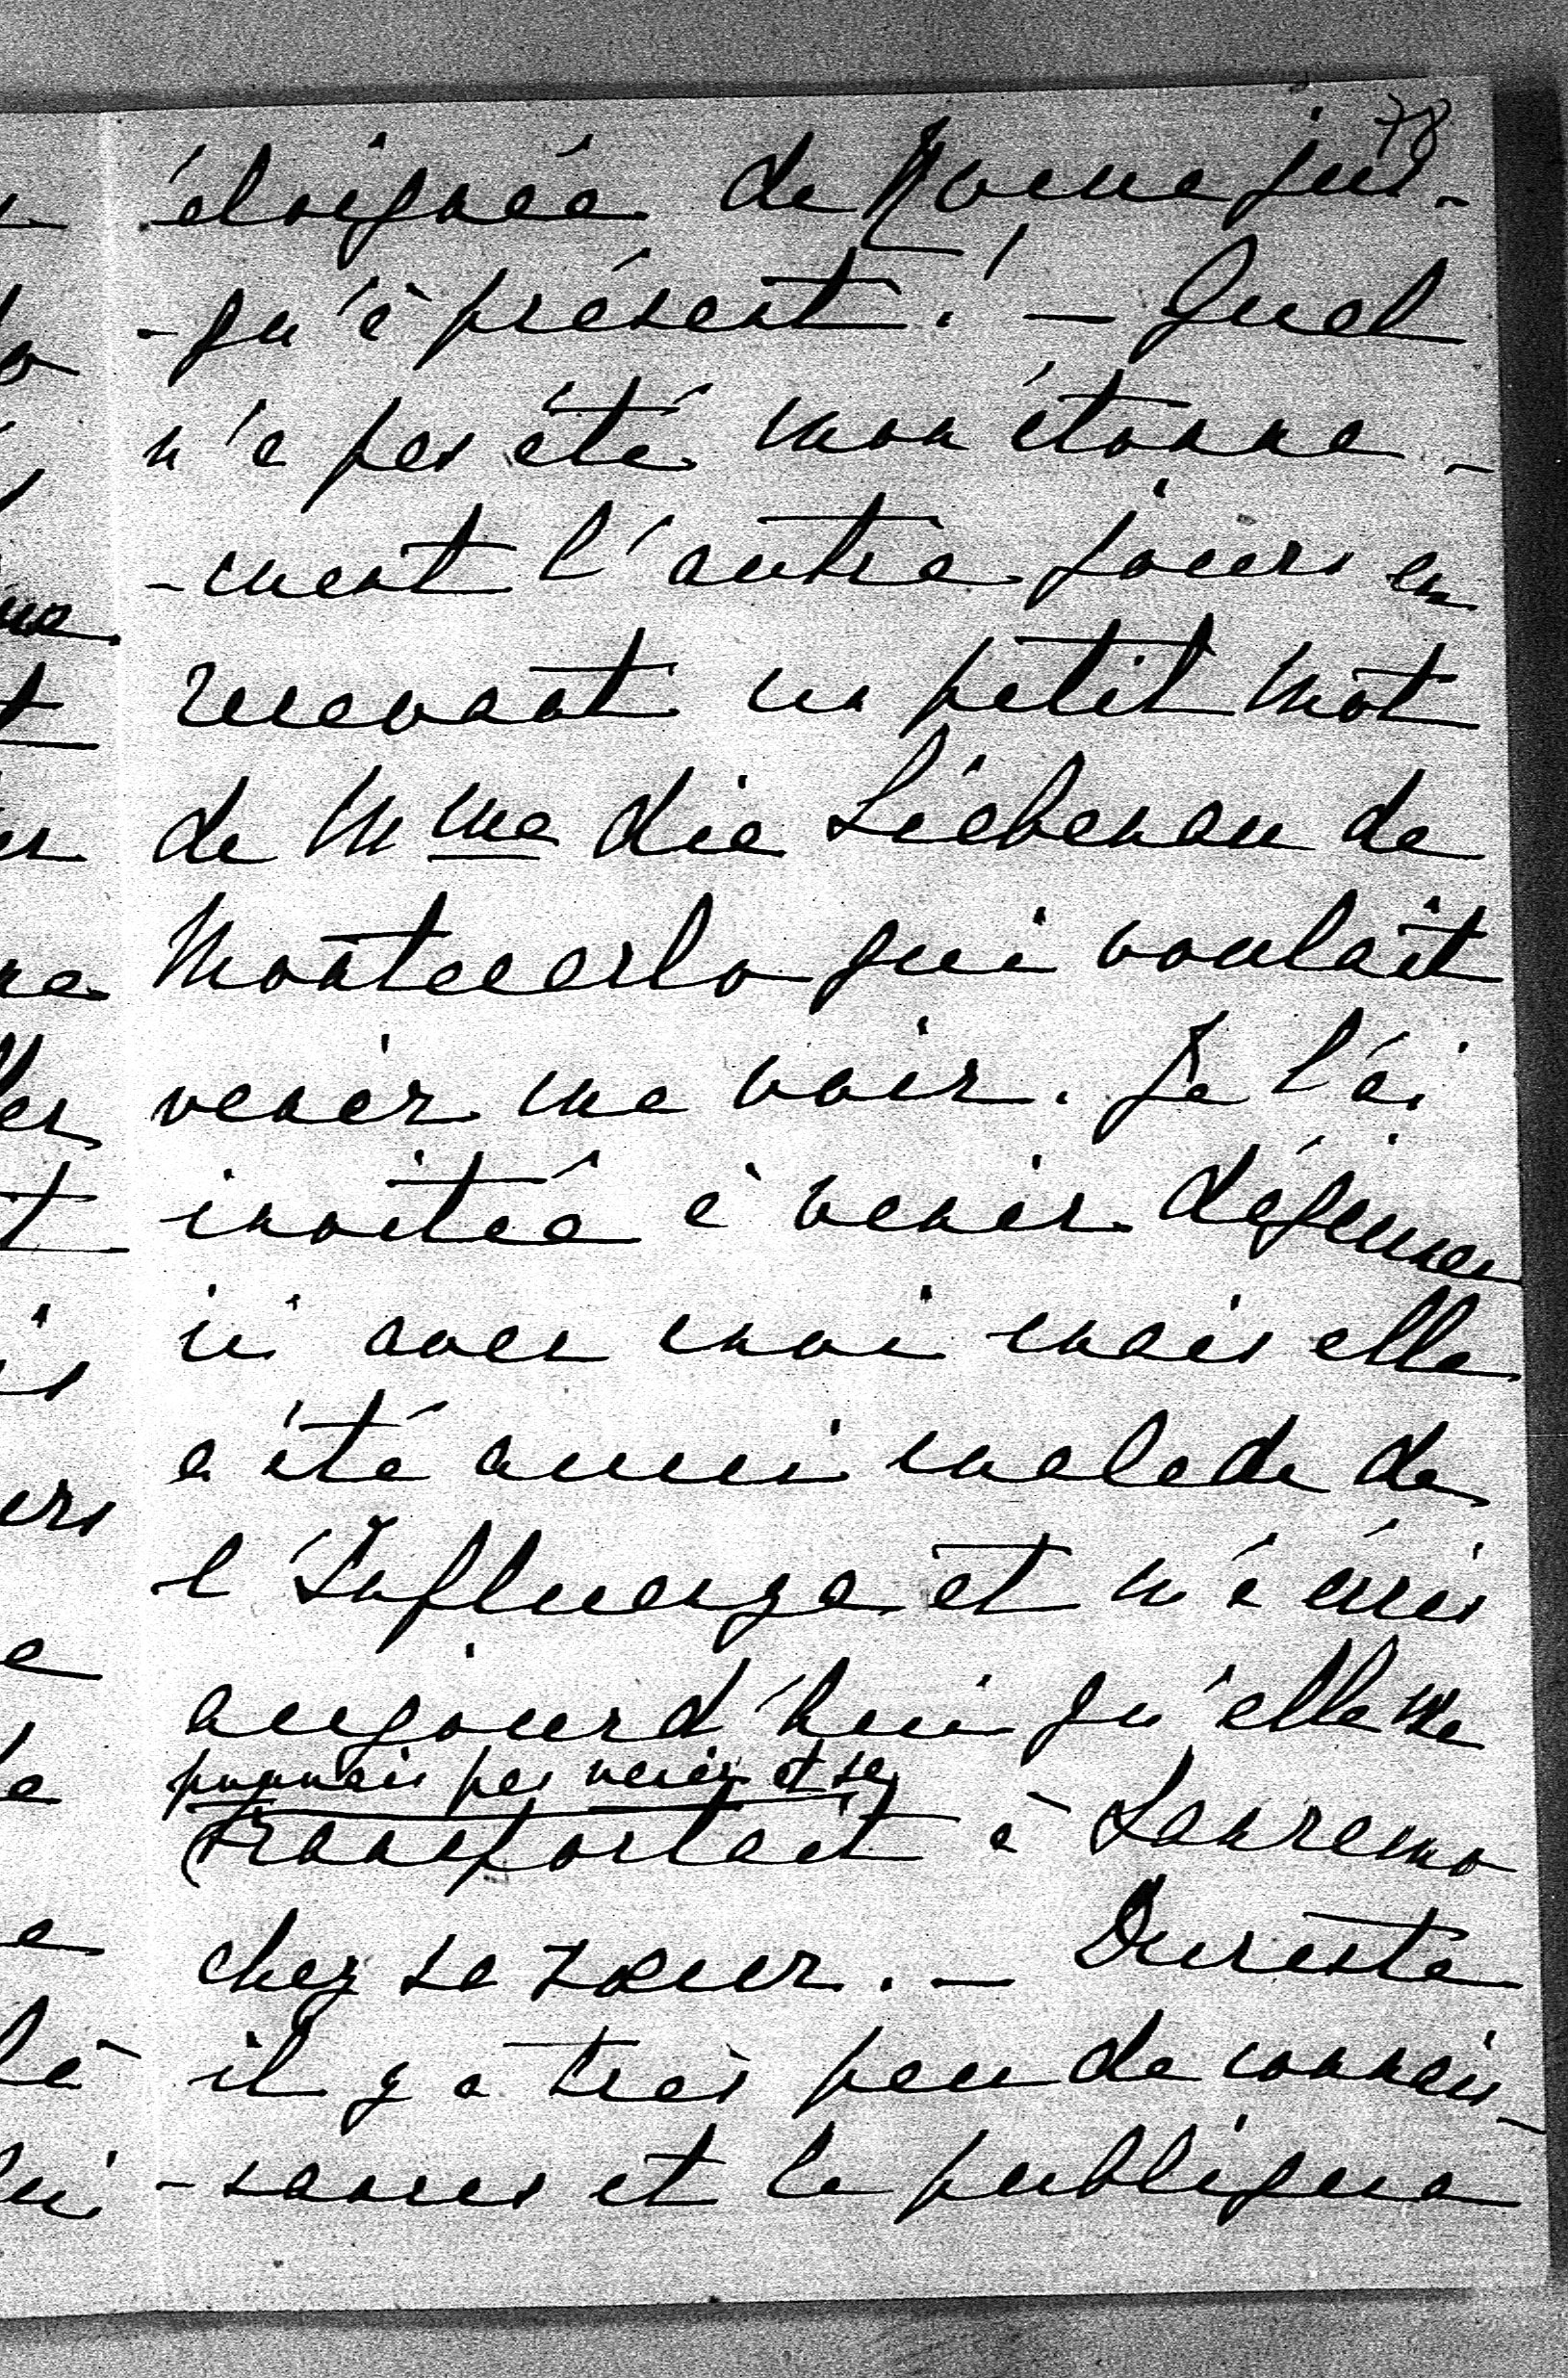 78
éloignée de Rome jus-
-qu'à présent! — Quel
n'a pas été mon étonne-
-ment l'autre jours en
recevant un petit mot
de Mme die Liebenau de
Montecarlo qui voulait
venir me voir. Je l'ai
invitée à venir déjeuner
ici avec moi mais elle
a été aussi malade de
l'Influenza et m'a écris
aujourd'hui qu'elle ne
pouvais pas venir et se
transportait à Sanremo
chez sa sœur. — Dureste
il y a très peu de connais-
-sances et le publique